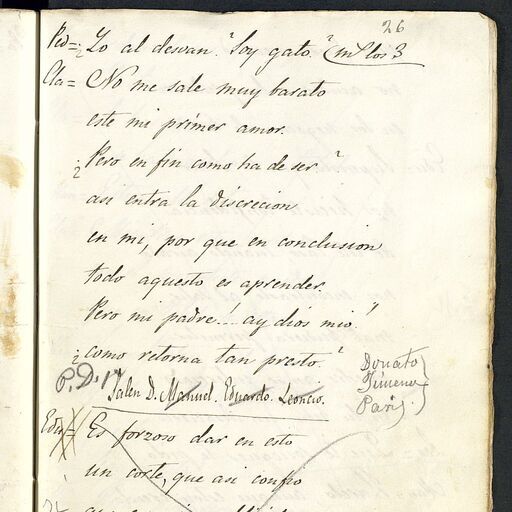 26
Ped= ¿Yo al desvan? ¿Soy gato? (m s los 3
Cla= No me sale muy barato
este mi primer amor.
¿Pero en fin como ha de ser?
asi entra la discrecion
en mi, por que en conclusion
todo aquesto es aprender.
Pero mi padre! ay dios mio!
¿como retorna tan presto?
P. D. 1ª
Salen D. Manuel. Eduardo. Leoncio.
Donato
Jimeno
Paris.
Edu= Es forzoso dar en esto
un corte, que asi confio